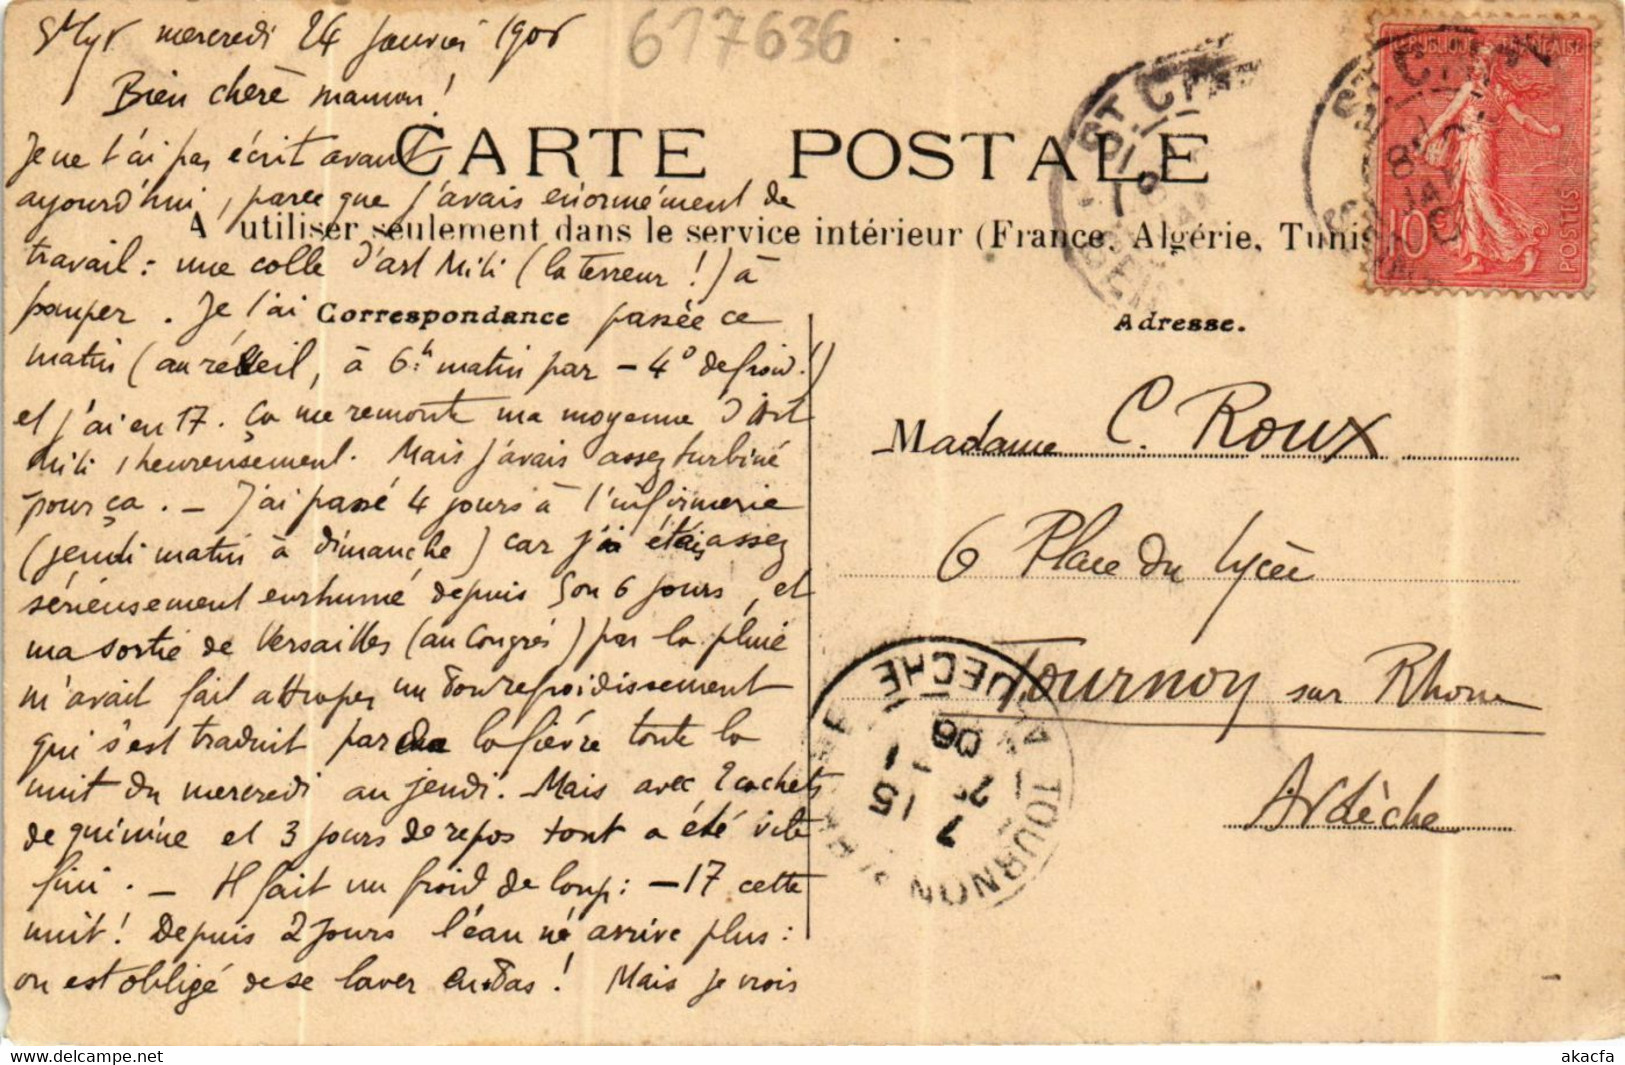 StCyr mercredi 24 janvier 1906
677636
Bien chère maman!
Je ne t'ai pas écrit avant
aujourd'hui, parce que j'avais énormément de
travail: une colle d'art Mili (la terreur!) à
pomper. Je l'ai passée ce
matin (au réveil, à 6h matin par -4° de froid!)
et j'ai eu 17. Ça me remonte ma moyenne d'Art
Mili, heureusement. Mais j'avais assez turbiné
pour ça. - J'ai passé 4 jours à l'infirmerie
(jeudi matin à dimanche) car j'étais assez
sérieusement enrhumé depuis 5 ou 6 jours, et
ma sortie de Versailles (au Congrès) par la pluie
m'avait fait attraper un bon refroidissement
qui s'est traduit par de la fièvre toute la
nuit du mercredi au jeudi. Mais avec 2 cachets
de quinine et 3 jours de repos tout a été vite
fini. - Il fait un froid de loup: -17 cette
nuit! Depuis 2 jours l'eau n'arrive plus:
on est obligé de se laver en bas! Mais je vois
CARTE POSTALE
A utiliser seulement dans le service intérieur (France, Algérie, Tunis
Correspondance
Adresse.
Madame C. Roux
6 Place du Lycée
Tournon sur Rhone
Ardèche
REPUBLIQUE FRANÇAISE
10c
POSTES
ST CYR
TOURNON
ARDECHE
7
15 1
06
akacfa